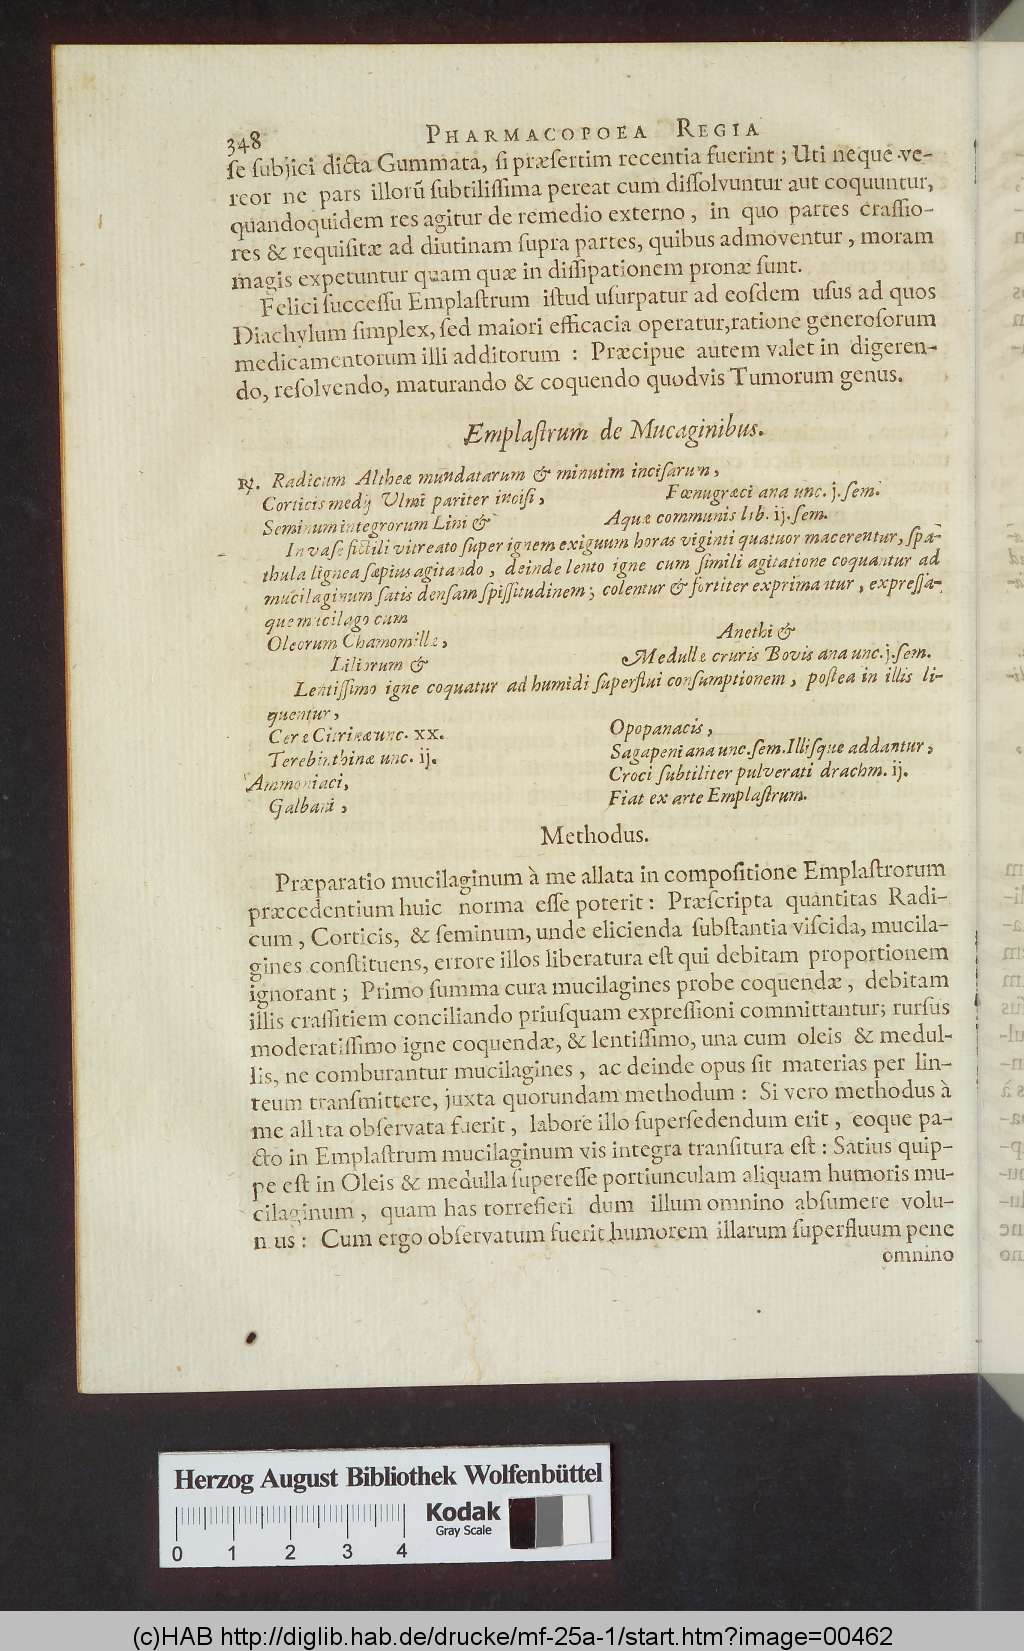 348 PHARMACOPOEA REGIA
ſe ſubjici dicta Gummata, ſi præſertim recentia fuerint ; Uti neque ve-
reor ne pars illorũ ſubtiliſſima pereat cum diſſolvuntur aut coquuntur,
quandoquidem res agitur de remedio externo, in quo partes craſſio-
res & requiſitæ ad diutinam ſupra partes, quibus admoventur, moram
magis expetuntur quam quæ in diſſipationem pronæ ſunt.
Felici ſucceſſu Emplaſtrum iſtud uſurpatur ad eoſdem uſus ad quos
Diachylum ſimplex, ſed maiori efficacia operatur, ratione generoſorum
medicamentorum illi additorum : Præcipue autem valet in digeren-
do, reſolvendo, maturando & coquendo quodvis Tumorum genus.
Emplaſtrum de Mucaginibus.
℞. Radicum Altheæ mundatarum & minutim inciſarum,
Corticis medij Ulmi pariter inciſi,
Seminum integrorum Lini &
Fœnugræci ana unc. j. ſem.
Aquæ communis lib. ij. ſem.
In vaſe fictili vitreato ſuper ignem exiguum horas viginti quatuor macerentur, ſpa-
thula lignea ſæpius agitando, deinde lento igne cum ſimili agitatione coquantur ad
mucilaginum ſatis denſam ſpiſſitudinem; colentur & fortiter exprimantur, expreſſa-
que mucilago cum
Oleorum Chamomillæ,
Liliorum &
Anethi &
Medullæ cruris Bovis ana unc. j. ſem.
Lentiſſimo igne coquatur ad humidi ſuperflui conſumptionem, poſtea in illis li-
quentur,
Ceræ Citrinæ unc. XX.
Terebinthinæ unc. ij.
Ammoniaci,
Galbani,
Opopanacis,
Sagapeni ana unc. ſem. Illiſque addantur,
Croci ſubtiliter pulverati drachm. ij.
Fiat ex arte Emplaſtrum.
Methodus.
Præparatio mucilaginum à me allata in compoſitione Emplaſtrorum
præcedentium huic norma eſſe poterit : Præſcripta quantitas Radi-
cum, Corticis, & ſeminum, unde elicienda ſubſtantia viſcida, mucila-
gines conſtituens, errore illos liberatura eſt qui debitam proportionem
ignorant ; Primo ſumma cura mucilagines probe coquendæ, debitam
illis craſſitiem conciliando priuſquam expreſſioni committantur; rurſus
moderatiſſimo igne coquendæ, & lentiſſimo, una cum oleis & medul-
lis, ne comburantur mucilagines, ac deinde opus ſit materias per lin-
teum tranſmittere, juxta quorundam methodum : Si vero methodus à
me allata obſervata fuerit, labore illo ſuperſedendum erit, eoque pa-
cto in Emplaſtrum mucilaginum vis integra tranſitura eſt : Satius quip-
pe eſt in Oleis & medulla ſupereſſe portiunculam aliquam humoris mu-
cilaginum, quam has torrefieri dum illum omnino abſumere volu-
mus : Cum ergo obſervatum fuerit humorem illarum ſuperfluum pene
omnino
Herzog August Bibliothek Wolfenbüttel
Kodak
Gray Scale
0 1 2 3 4
(c)HAB http://diglib.hab.de/drucke/mf-25a-1/start.htm?image=00462